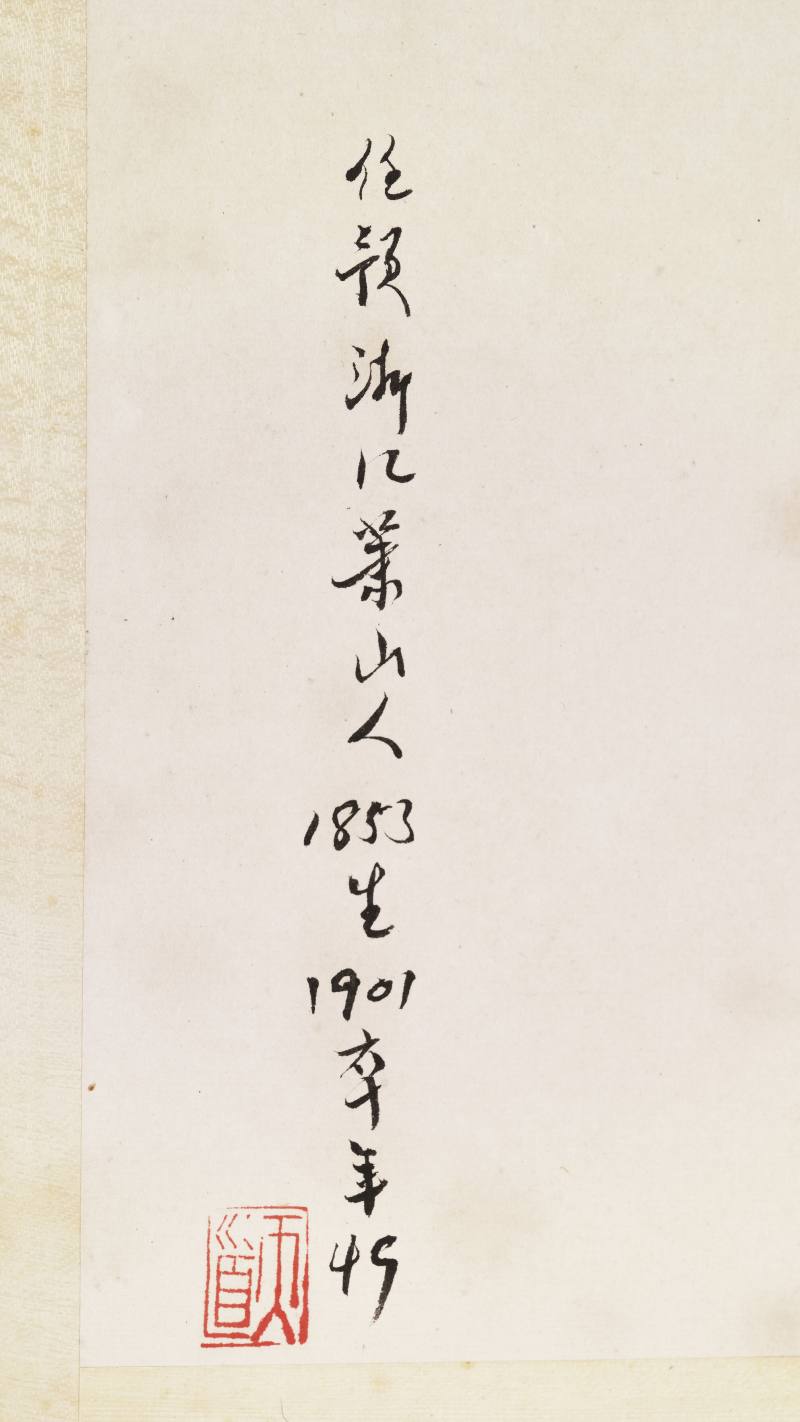 任預浙江蕭山人1853生1901卒年49